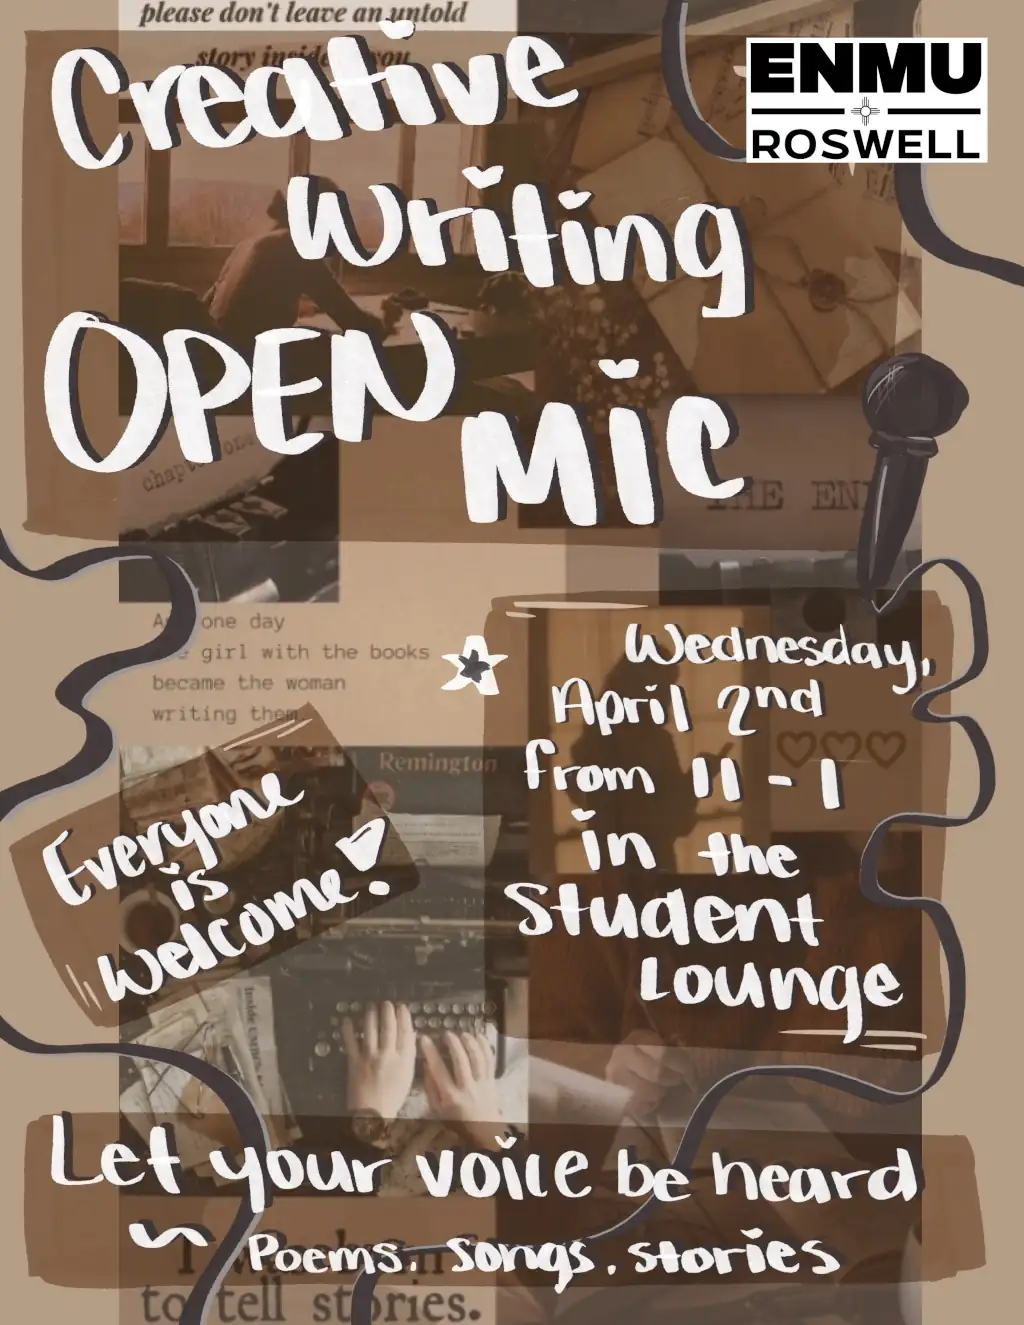 please don't leave an untold
story inside you
Creative
Writing
OPEN
MIC
ENMU
ROSWELL
chapter one
THE END
one day
girl with the books
became the woman
writing them.
Remington
Wednesday,
April 2nd
from 11 - 1
in the
Student
Lounge
Everyone
is
welcome!
Let your voice be heard
~ Poems. songs. stories
to tell stories.